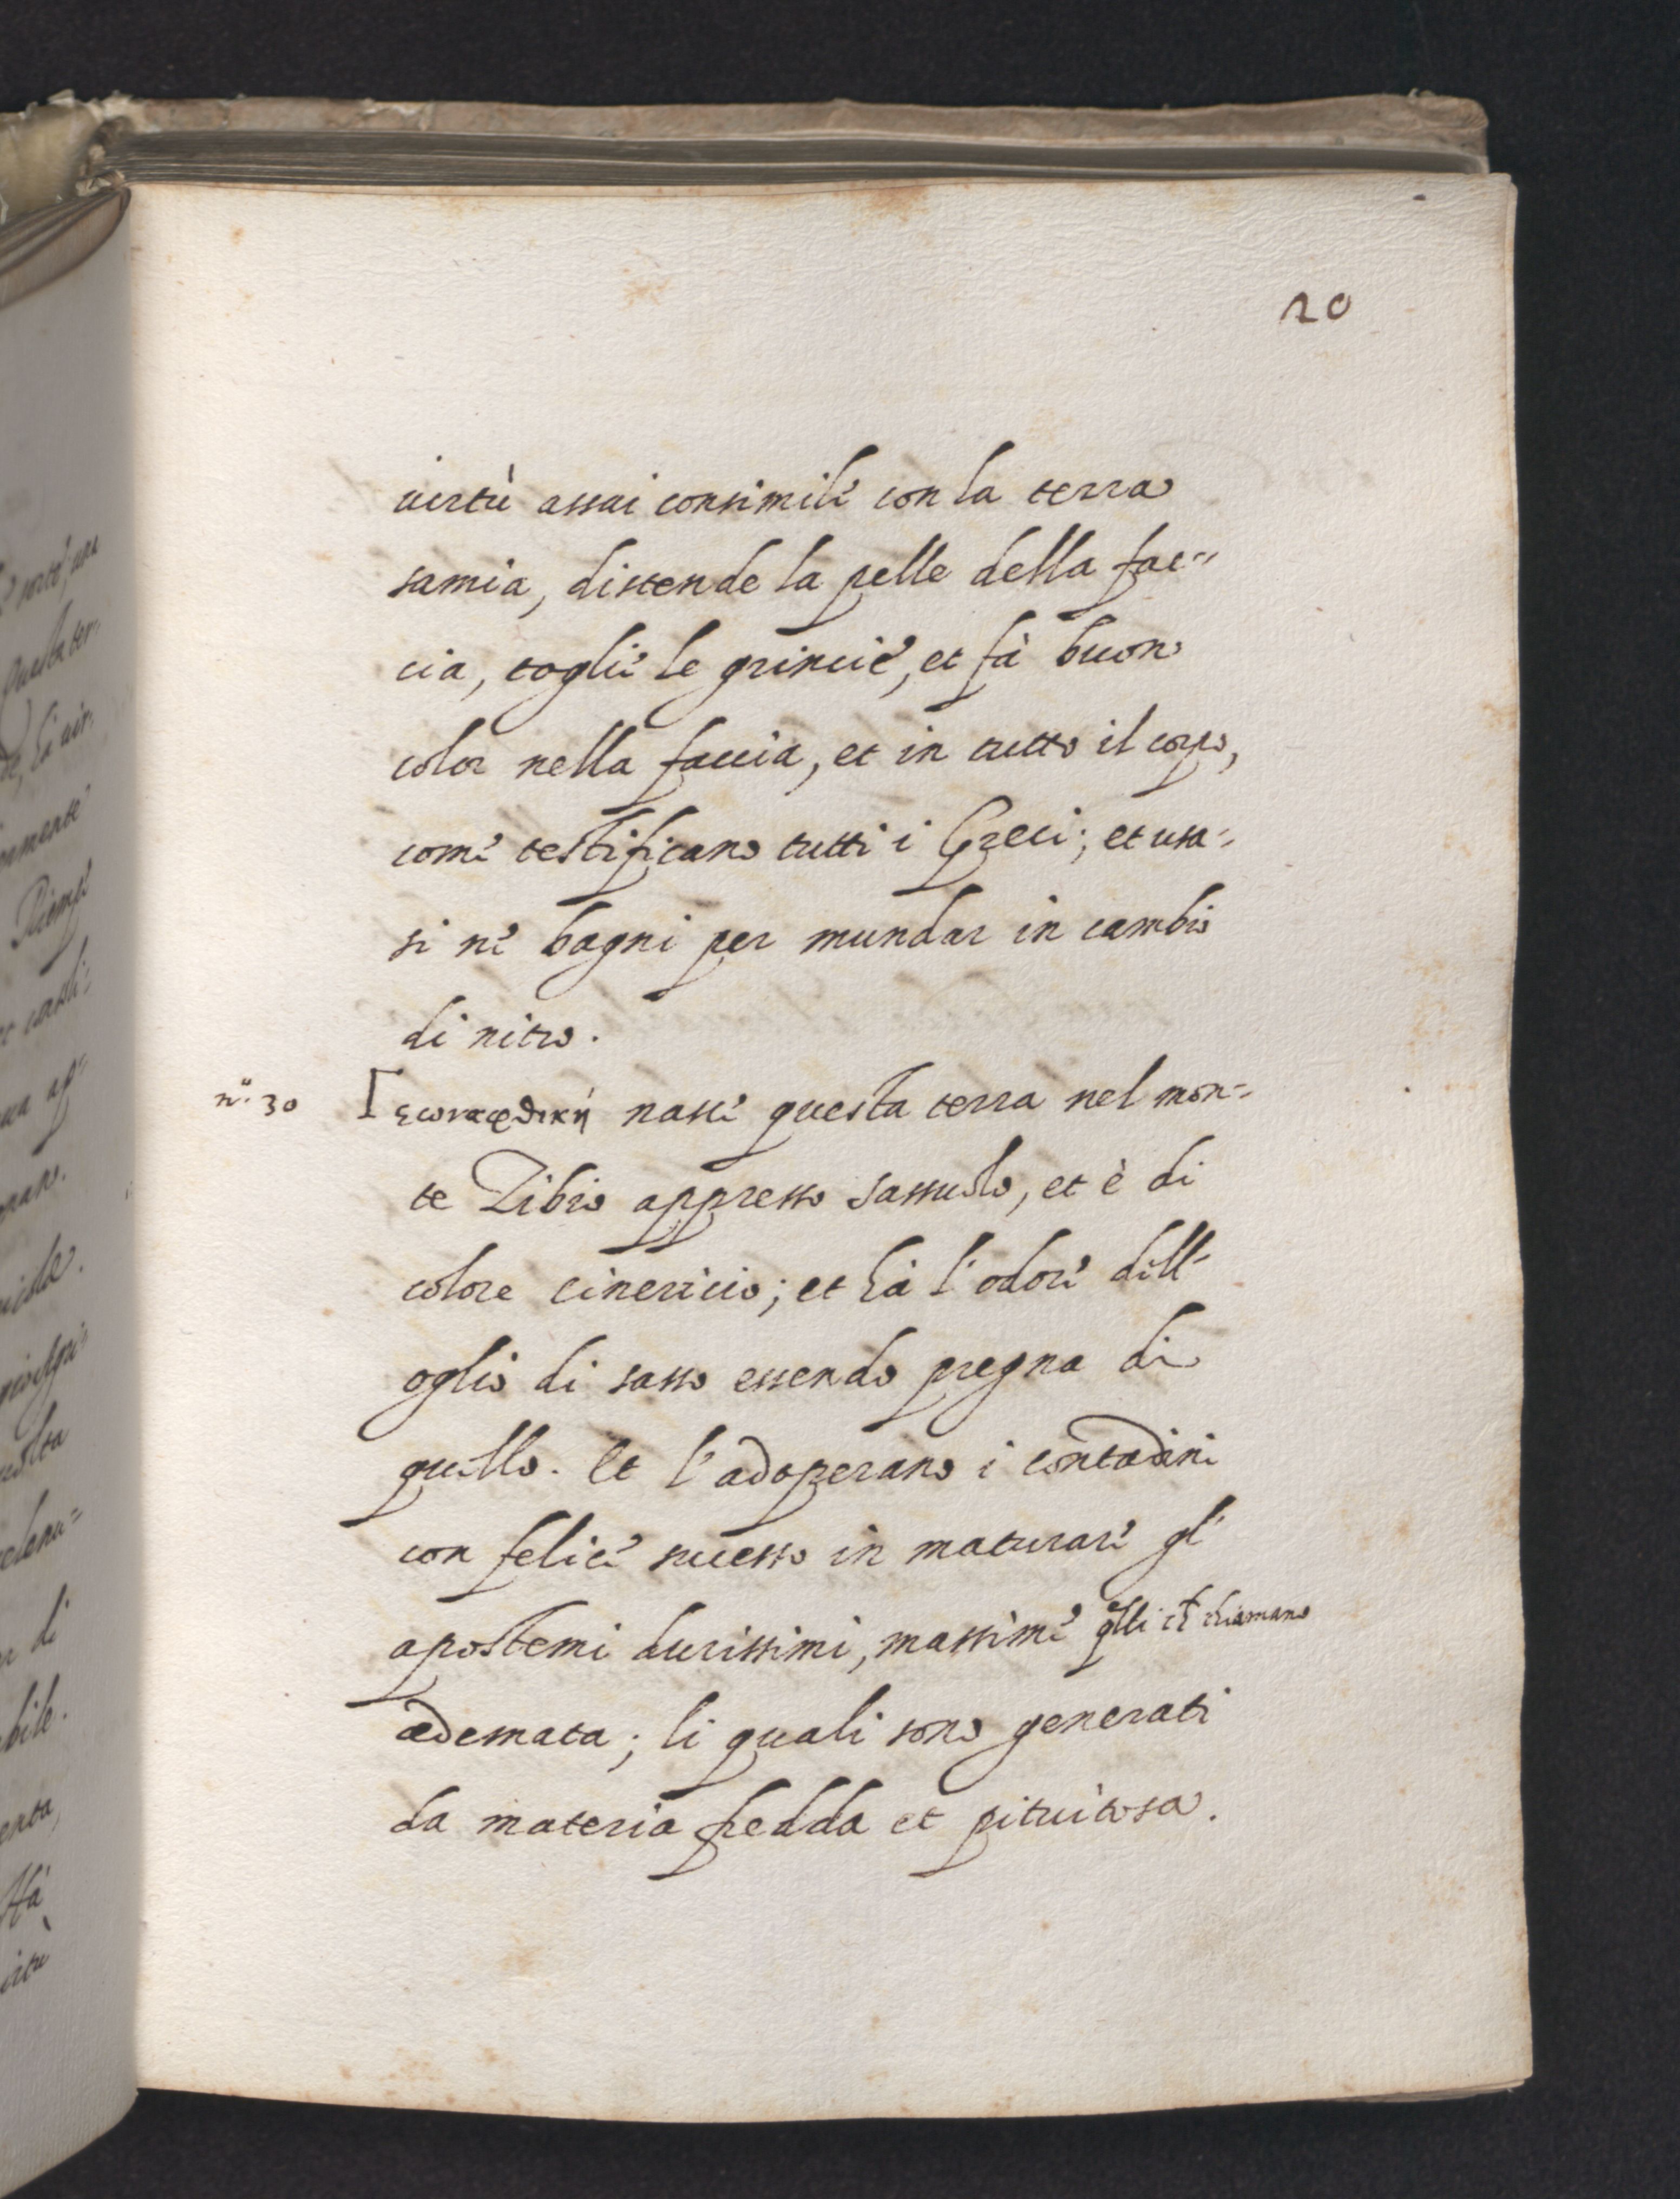 20
uirtù assai consimile con la terra
samia, distende la pelle della fac=
cia, toglie le grincie, et fà buon
color nella faccia, et in tutto il corpo,
come testificano tutti i Greci; et usa=
si ne bagni per mundar in cambio
di nitro.
n.º 30 Γεωναφθική nasce questa terra nel mon=
te Zibio appresso Sassuolo, et è di
colore cinericio; et hà l'odore dell'
oglio di sasso essendo pregna di
quello. Et l'adoperano i contadini
con felice successo in maturare gl'
apostemi durissimi, massime qlli ch chiamano
ædemata; li quali sono generati
da materia fredda et pituitosa.